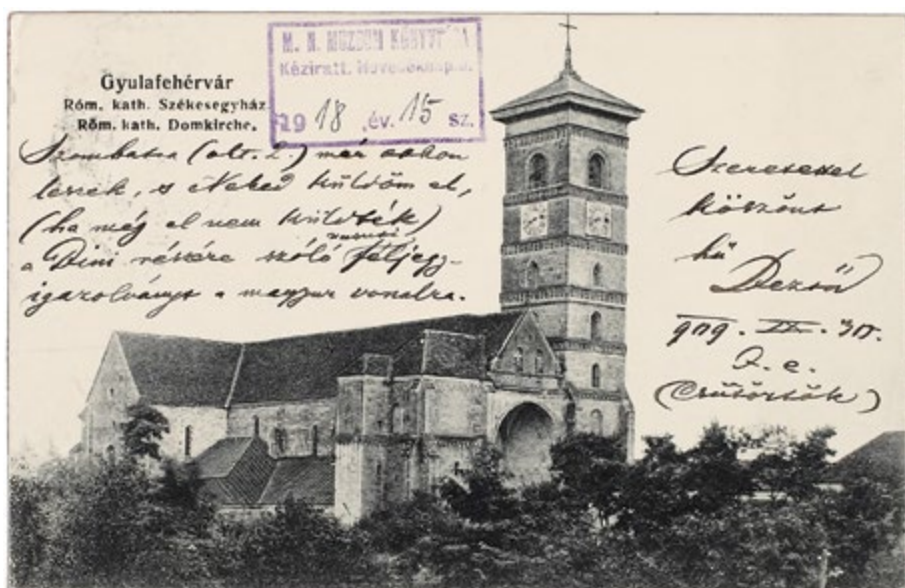 Gyulafehérvár
Róm. kath. Székesegyház.
Röm. kath. Domkirche.
M. N. MUZEUM KÖNYVTÁRA
Kéziratt. Növedéknapló
1918 .év. 15 sz.
Szombaton (okt. 2.) már otthon
leszek, s Neked küldöm el,
(ha még el nem küldték)
a Dini részére szóló féljegy-
igazolványt a magyar vonalra.
Szeretettel
köszönt
hű
Dezső
909. IX. 30.
d. e.
(Csütörtök)